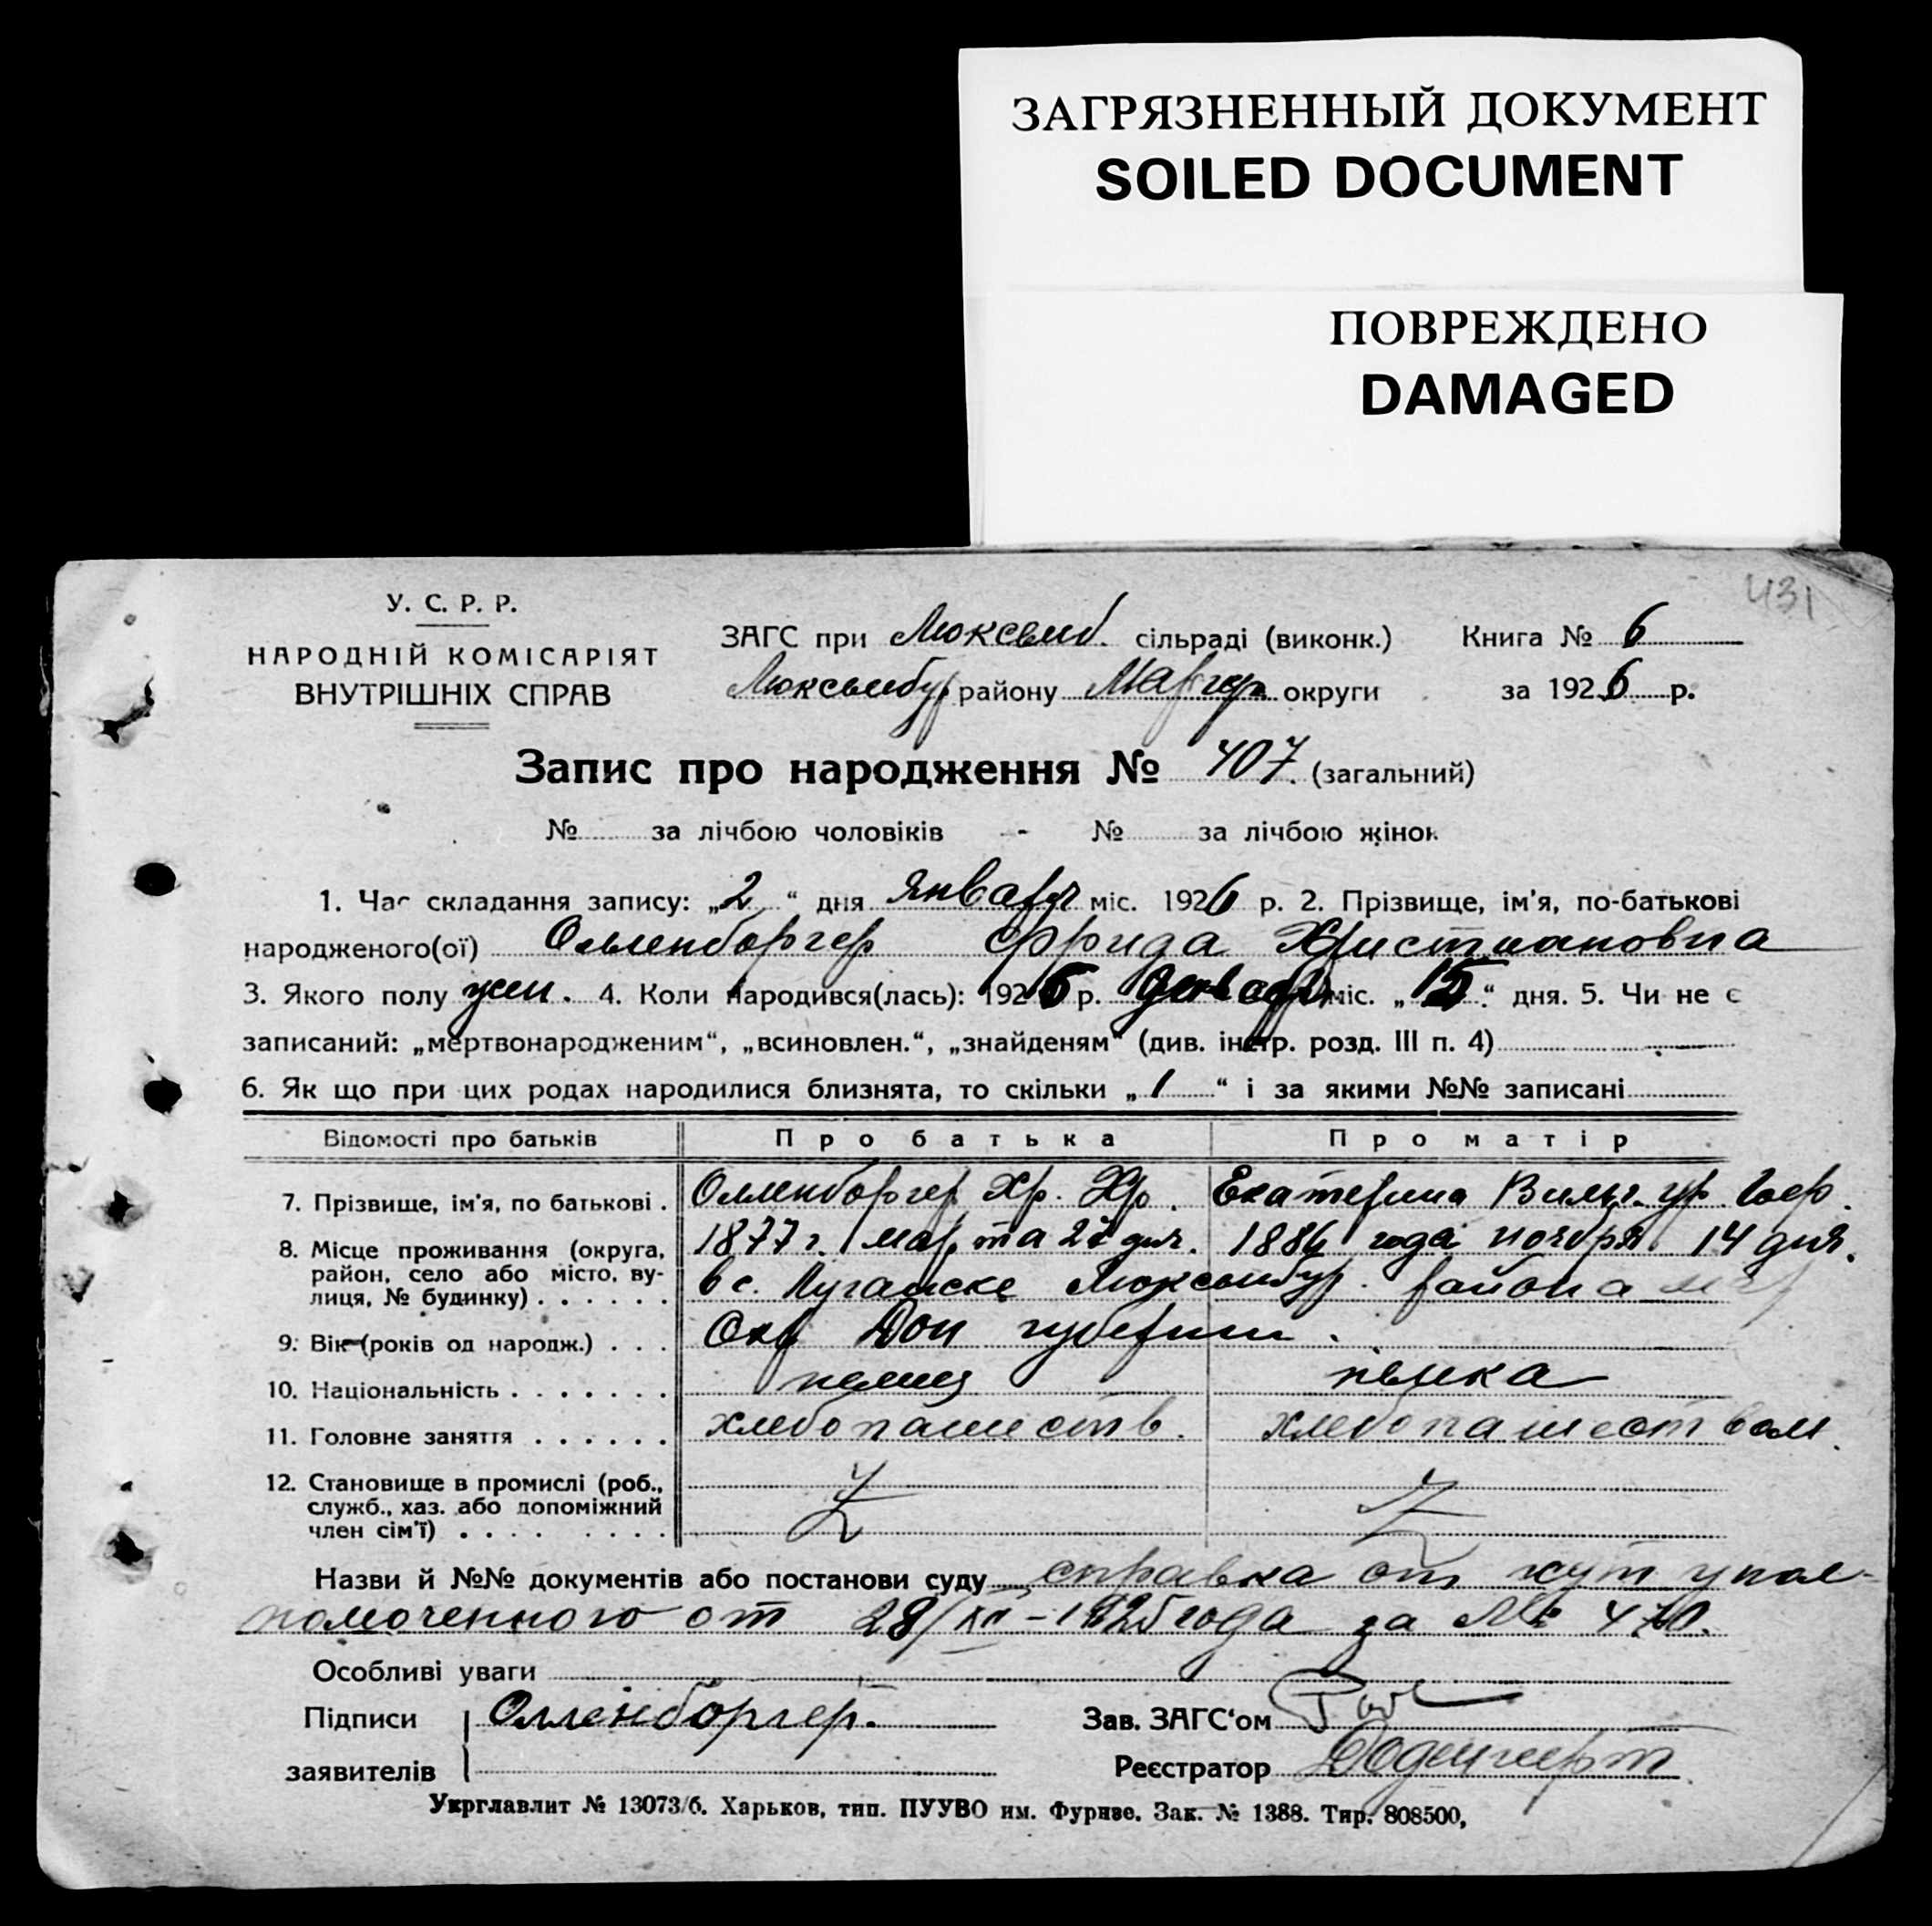 ЗАГРЯЗНЕННЫЙ ДОКУМЕНТ
SOILED DOCUMENT
ПОВРЕЖДЕНО
DAMAGED
431
У. С. Р. Р.
НАРОДНІЙ КОМІСАРІЯТ
ВНУТРІШНІХ СПРАВ
ЗАГС при Люксемб. сільраді (виконк.) Книга № 6
Люксембур району округи за 1926 р.
Запис про народження № 407. (загальний)
№ за лічбою чоловіків - № за лічбою жінок
1. Час складання запису: „2“ дня января міс. 1926 р. 2. Прізвище, ім'я, по-батькові
народженого(ої) Олленборгер Фрида Христиановна
3. Якого полу жен. 4. Коли народився(лась): 1925 р. декабря міс. „15“ дня. 5. Чи не є
записаний: „мертвонародженим“, „всиновлен.“, „знайденям“ (див. інстр. розд. III п. 4)
6. Як що при цих родах народилися близнята, то скільки „1“ і за якими №№ записані
Відомості про батьків Про батька Про матір
7. Прізвище, ім'я, по батькові . Олленборгер Хр. Хр. Екатерина Вильг. ур.
8. Місце проживання (округа, 1877 г. марта 27 дня. 1886 года ноября 14 дня.
район, село або місто, ву-
лиця, № будинку) . . . . . . в с. Люксембур. района
9. Вік (років од народж.) . . . Окр Дон губернии.
10. Національність . . . . . . . немец немка
11. Головне заняття . . . . . . хлебопашеств. хлебопашеством.
12. Становище в промислі (роб.,
служб., хаз. або допоміжний
член сім'ї) . . . . . . . .
Назви й №№ документів або постанови суду справка от хут упол-
номоченного от 28/XII-1925 года за № 470.
Особливі уваги
Підписи Олленборгер. Зав. ЗАГС'ом
заявителів Реєстратор
Укрглавлит № 13073/б. Харьков, тип. ПУУВО им. Фрунзе. Зак. № 1388. Тир. 808500,